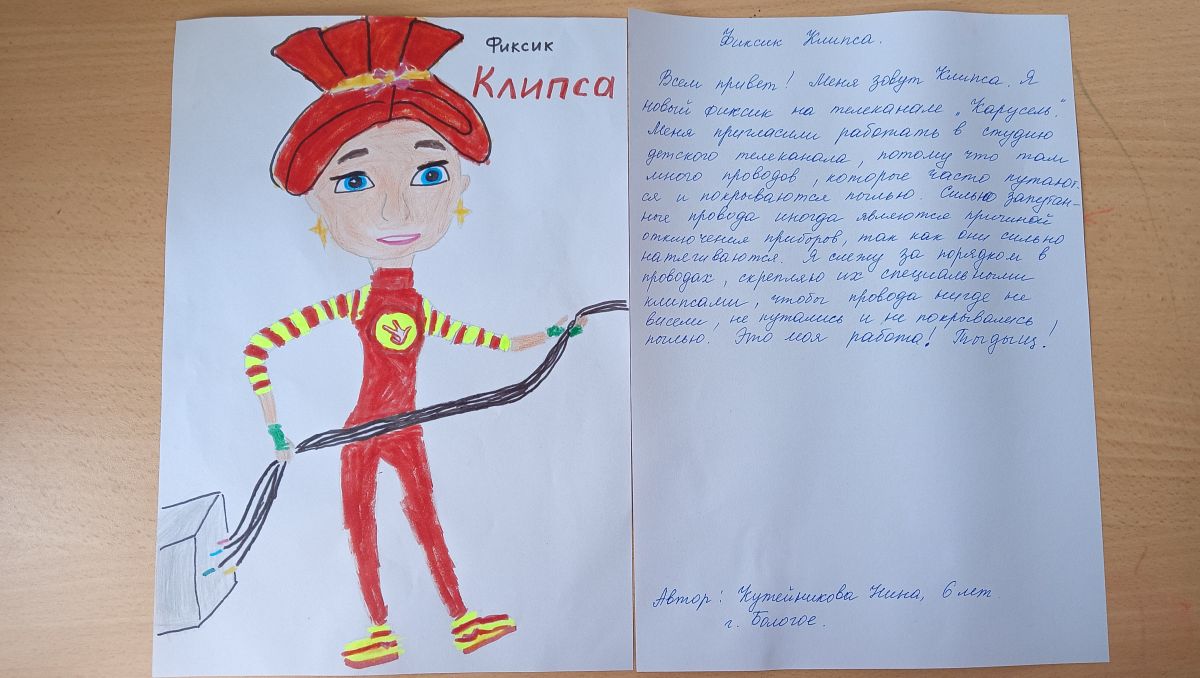 Фиксик
Клипса
Фиксик Клипса.
Всем привет! Меня зовут Клипса. Я
новый фиксик на телеканале „Карусель“.
Меня пригласили работать в студию
детского телеканала, потому что там
много проводов, которые часто путают-
ся и покрываются пылью. Сильно запутан-
ные провода иногда являются причиной
отключения приборов, так как они сильно
натягиваются. Я слежу за порядком в
проводах, скрепляю их специальными
клипсами, чтобы провода нигде не
висели, не путались и не покрывались
пылью. Это моя работа! Тыдыщ!
Автор: Кутейникова Нина, 6 лет.
г. Бологое.